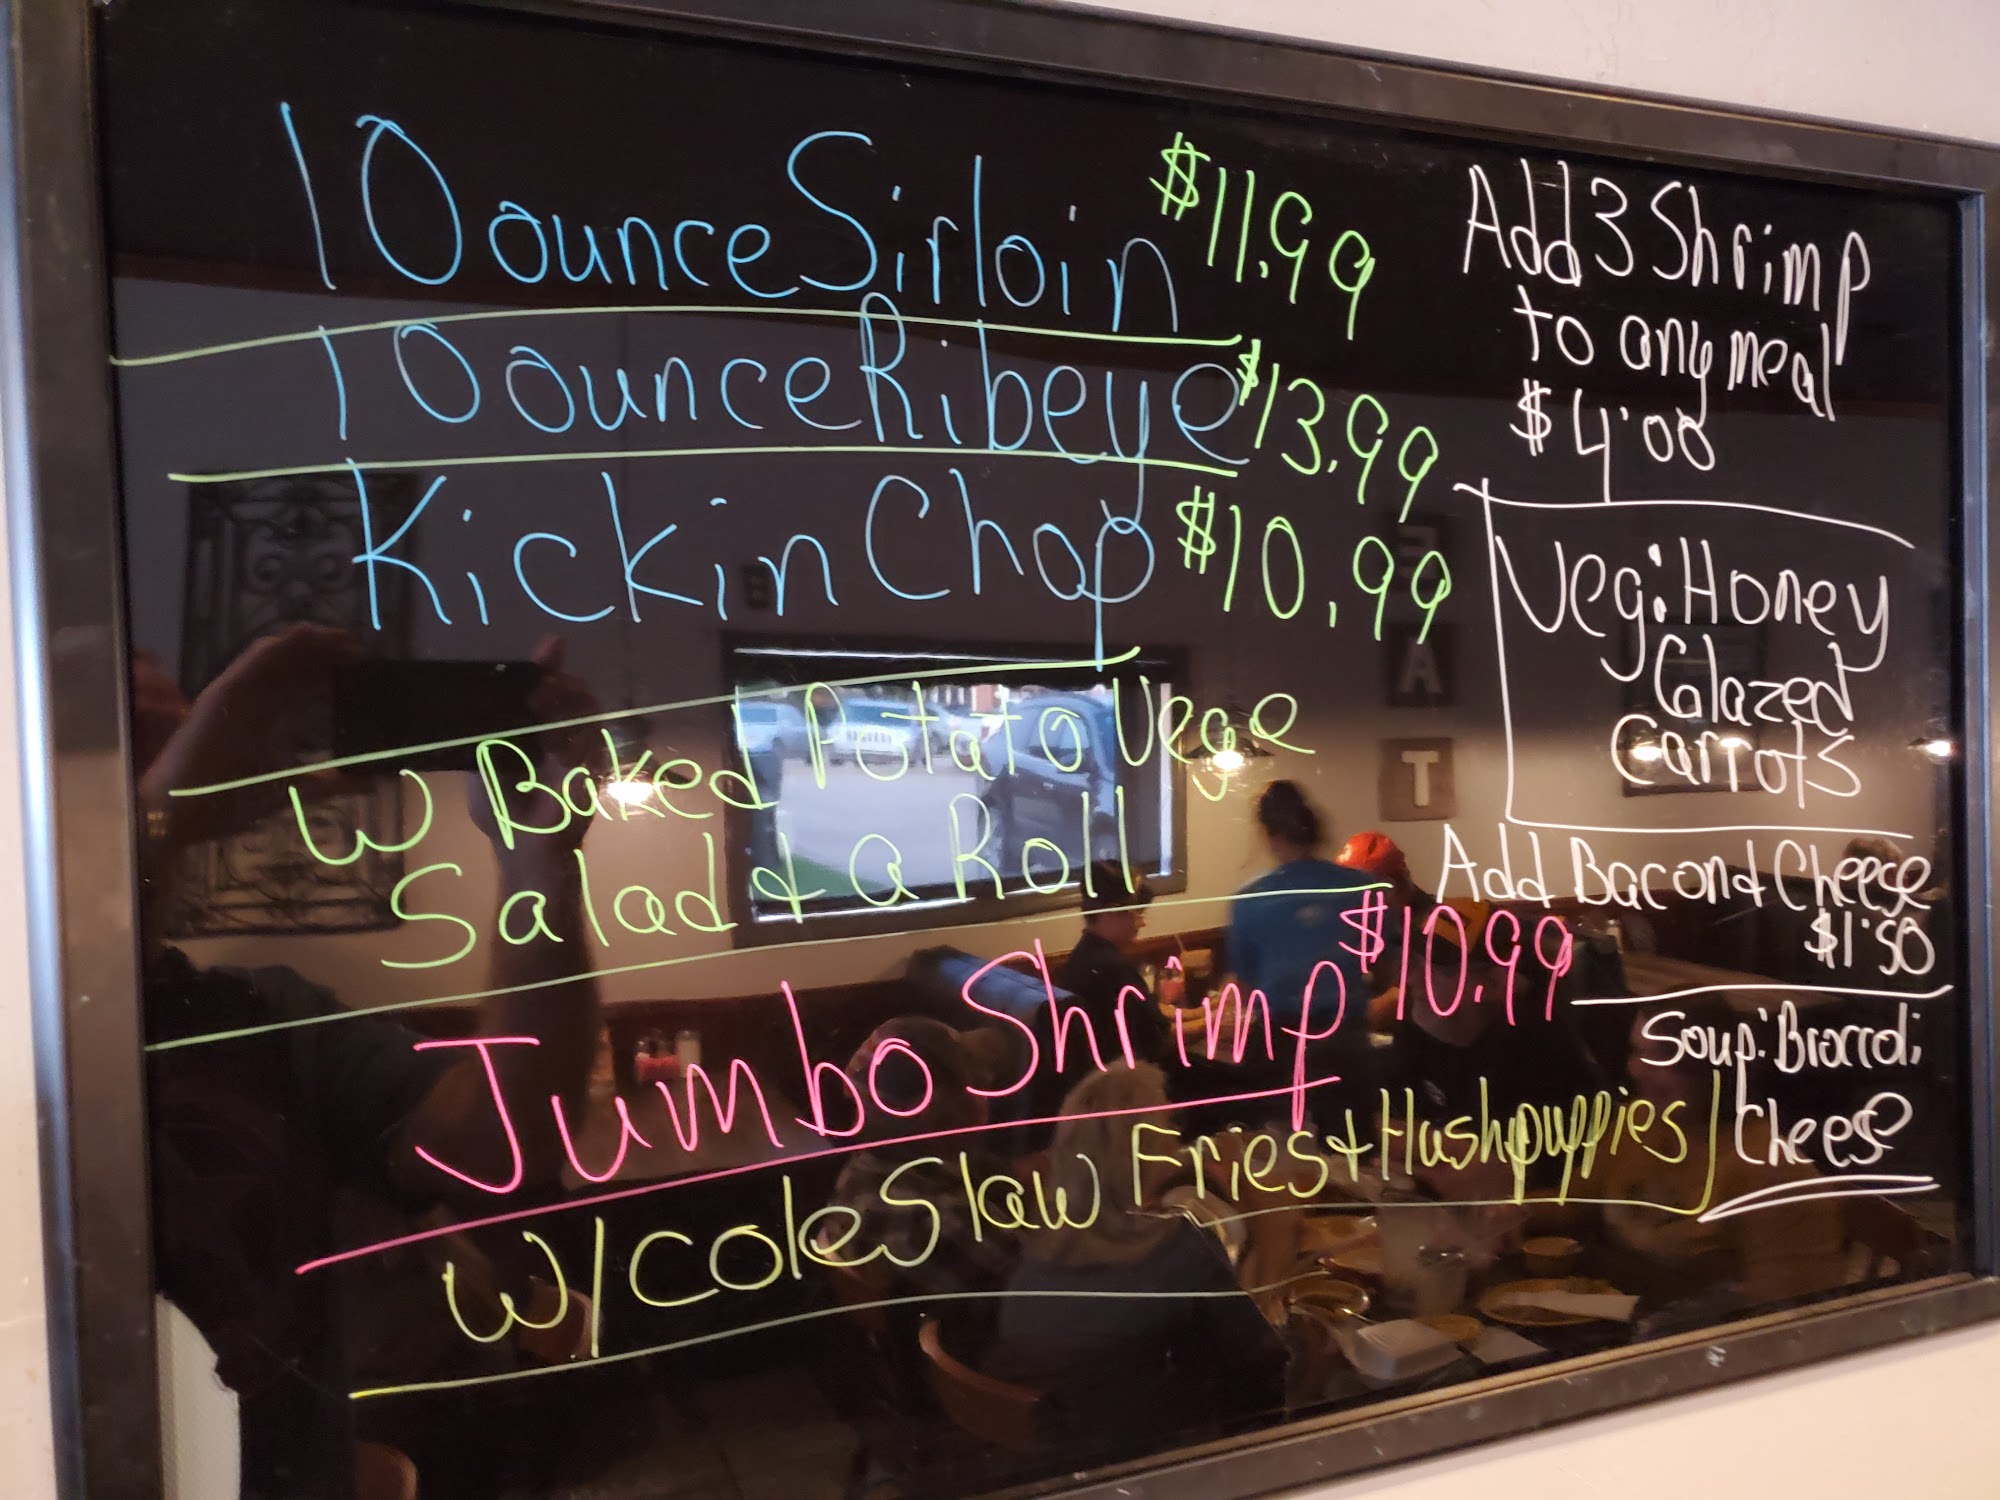 10 ounce Sirloin $11.99
10 ounce Ribeye $13.99
Kickin Chop $10.99
W Baked Potato Vege
Salad & a Roll
Jumbo Shrimp $10.99
W/Cole Slaw Fries & Hushpuppies
Add 3 Shrimp
to any meal
$4.00
Veg: Honey
Glazed
Carrots
Add Bacon & Cheese
$1.50
Soup: Broccoli
Cheese
A
T